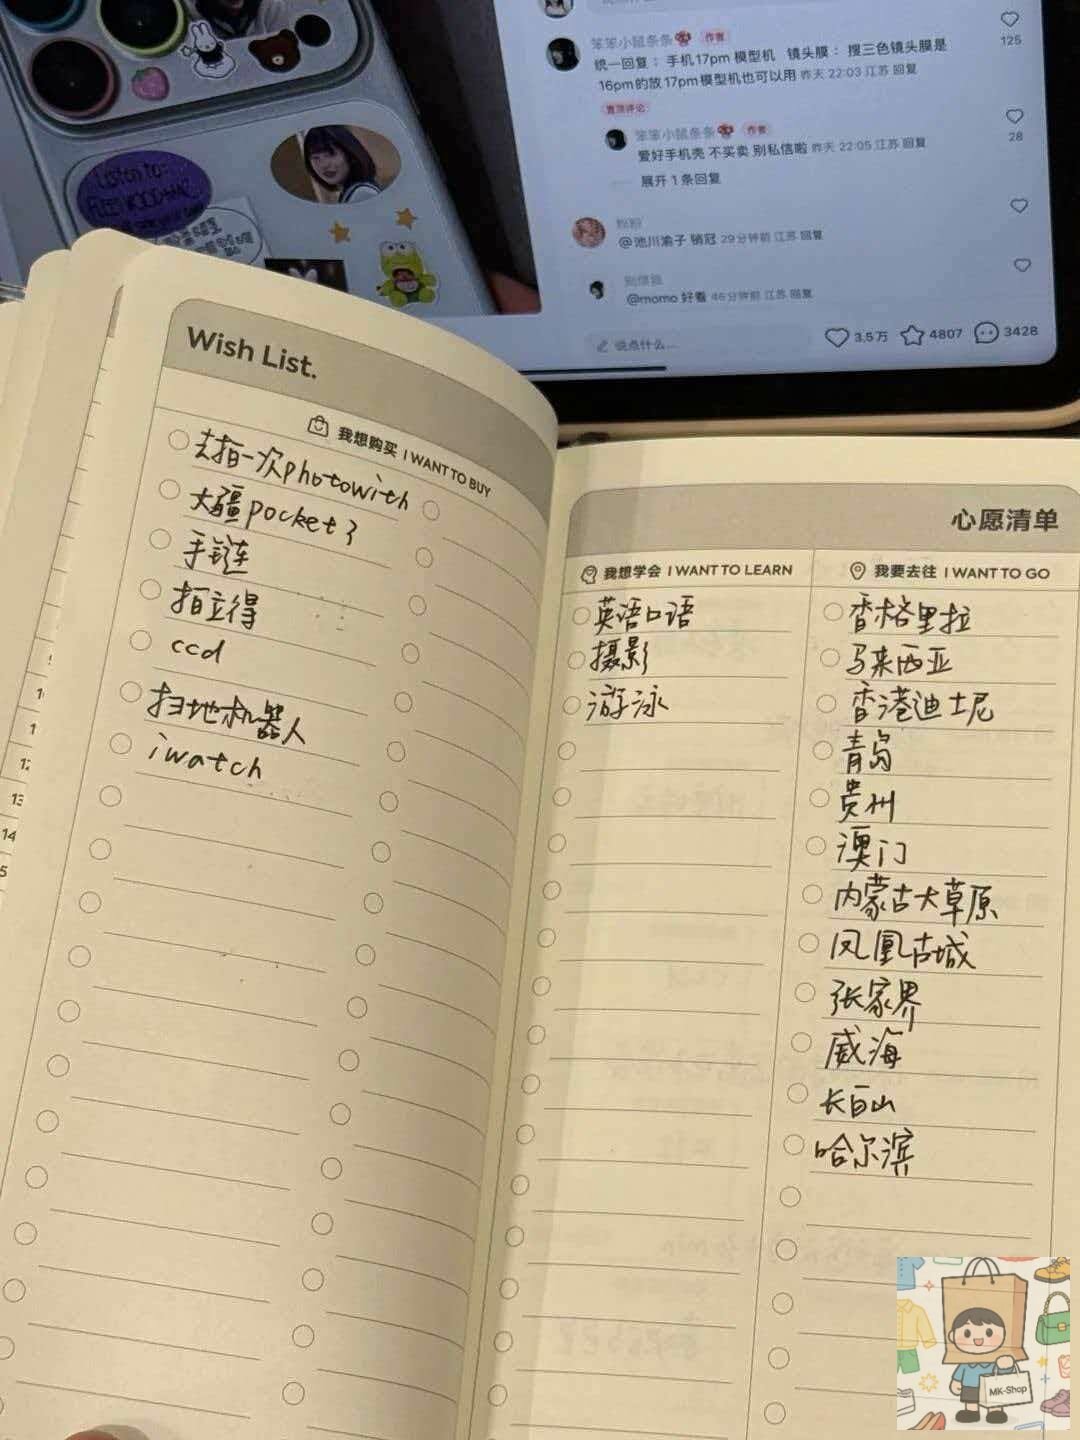 125
笨笨小鼠条条 作者
统一回复：手机17pm 模型机 镜头膜：搜三色镜头膜是
16pm的放17pm模型机也可以用 昨天 22:03 江苏 回复
置顶评论
笨笨小鼠条条 作者
爱好手机壳 不买卖 别私信啦 昨天 22:05 江苏 回复
28
展开 1 条回复
@池川渝子 销冠 29分钟前 江苏 回复
@momo 好看 46分钟前 江苏 回复
说点什么...
3.5万 4807 3428
Listen to:
Wish List.
我想购买 I WANT TO BUY
去拍一次photowith
大疆pocket3
手链
拍立得
ccd
扫地机器人
iwatch
心愿清单
我想学会 I WANT TO LEARN
英语口语
摄影
游泳
我要去往 I WANT TO GO
香格里拉
马来西亚
香港迪士尼
青岛
贵州
澳门
内蒙古大草原
凤凰古城
张家界
威海
长白山
哈尔滨
13
14
MK-Shop